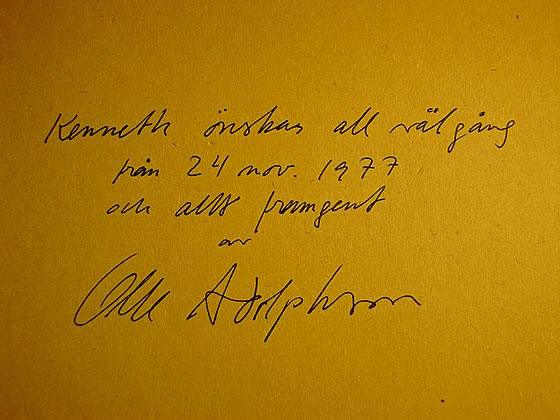 Kenneth önskas all välgång
från 24 nov. 1977
och allt framgent
av
Olle Adolphson